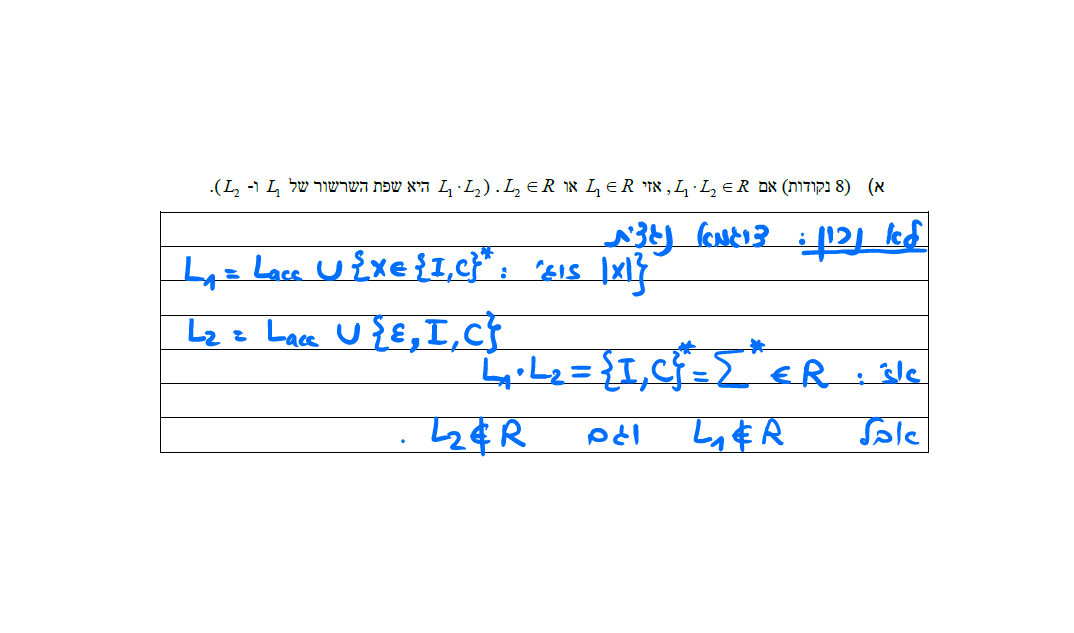 א) (8 נקודות) אם L₁·L₂ ∈ R, אזי L₁ ∈ R או L₂ ∈ R. (L₁·L₂ היא שפת השרשור של L₁ ו- L₂).
לא נכון: דוגמא נגדית
L₁ = Lacc ∪ {x ∈ {I,C}* : זוגי |x|}
L₂ = Lacc ∪ {ε, I, C}
אז: L₁·L₂ = {I,C}* = Σ* ∈ R
אבל L₁ ∉ R וגם L₂ ∉ R .